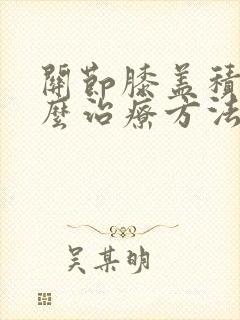 關節膝盖積
麼治療方法
吴某明